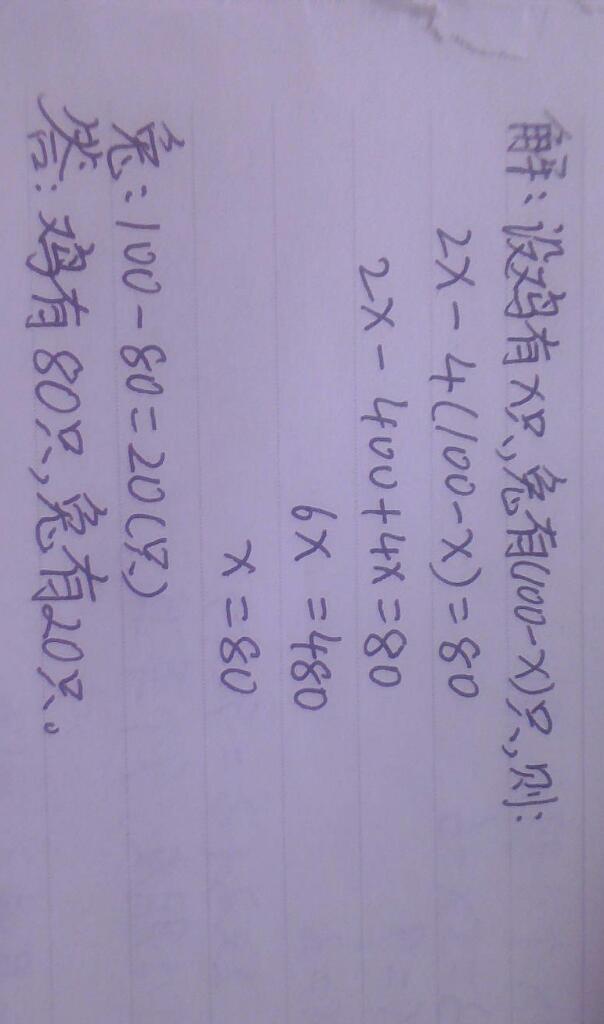 解：设鸡有x只，兔有(100-x)只，则：
2x-4(100-x)=80
2x-400+4x=80
6x=480
x=80
兔：100-80=20(只)
答：鸡有80只，兔有20只。